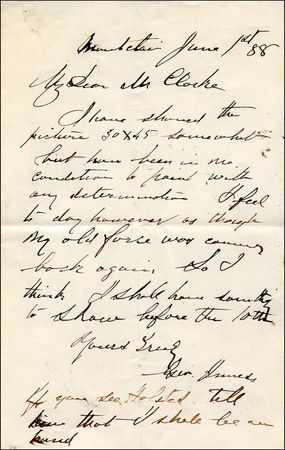 Montclair June 1st 88
My Dear Mr Clarke
I have showed the
picture 30x45 somewhat
but have been in no
condition to paint with
any determination I feel
to day however as though
my old force was coming
back again. So I
think I shall have something
to show before the 10th
Yours Truly
Geo Inness
If you see Halsted tell
him that I shall be on
hand